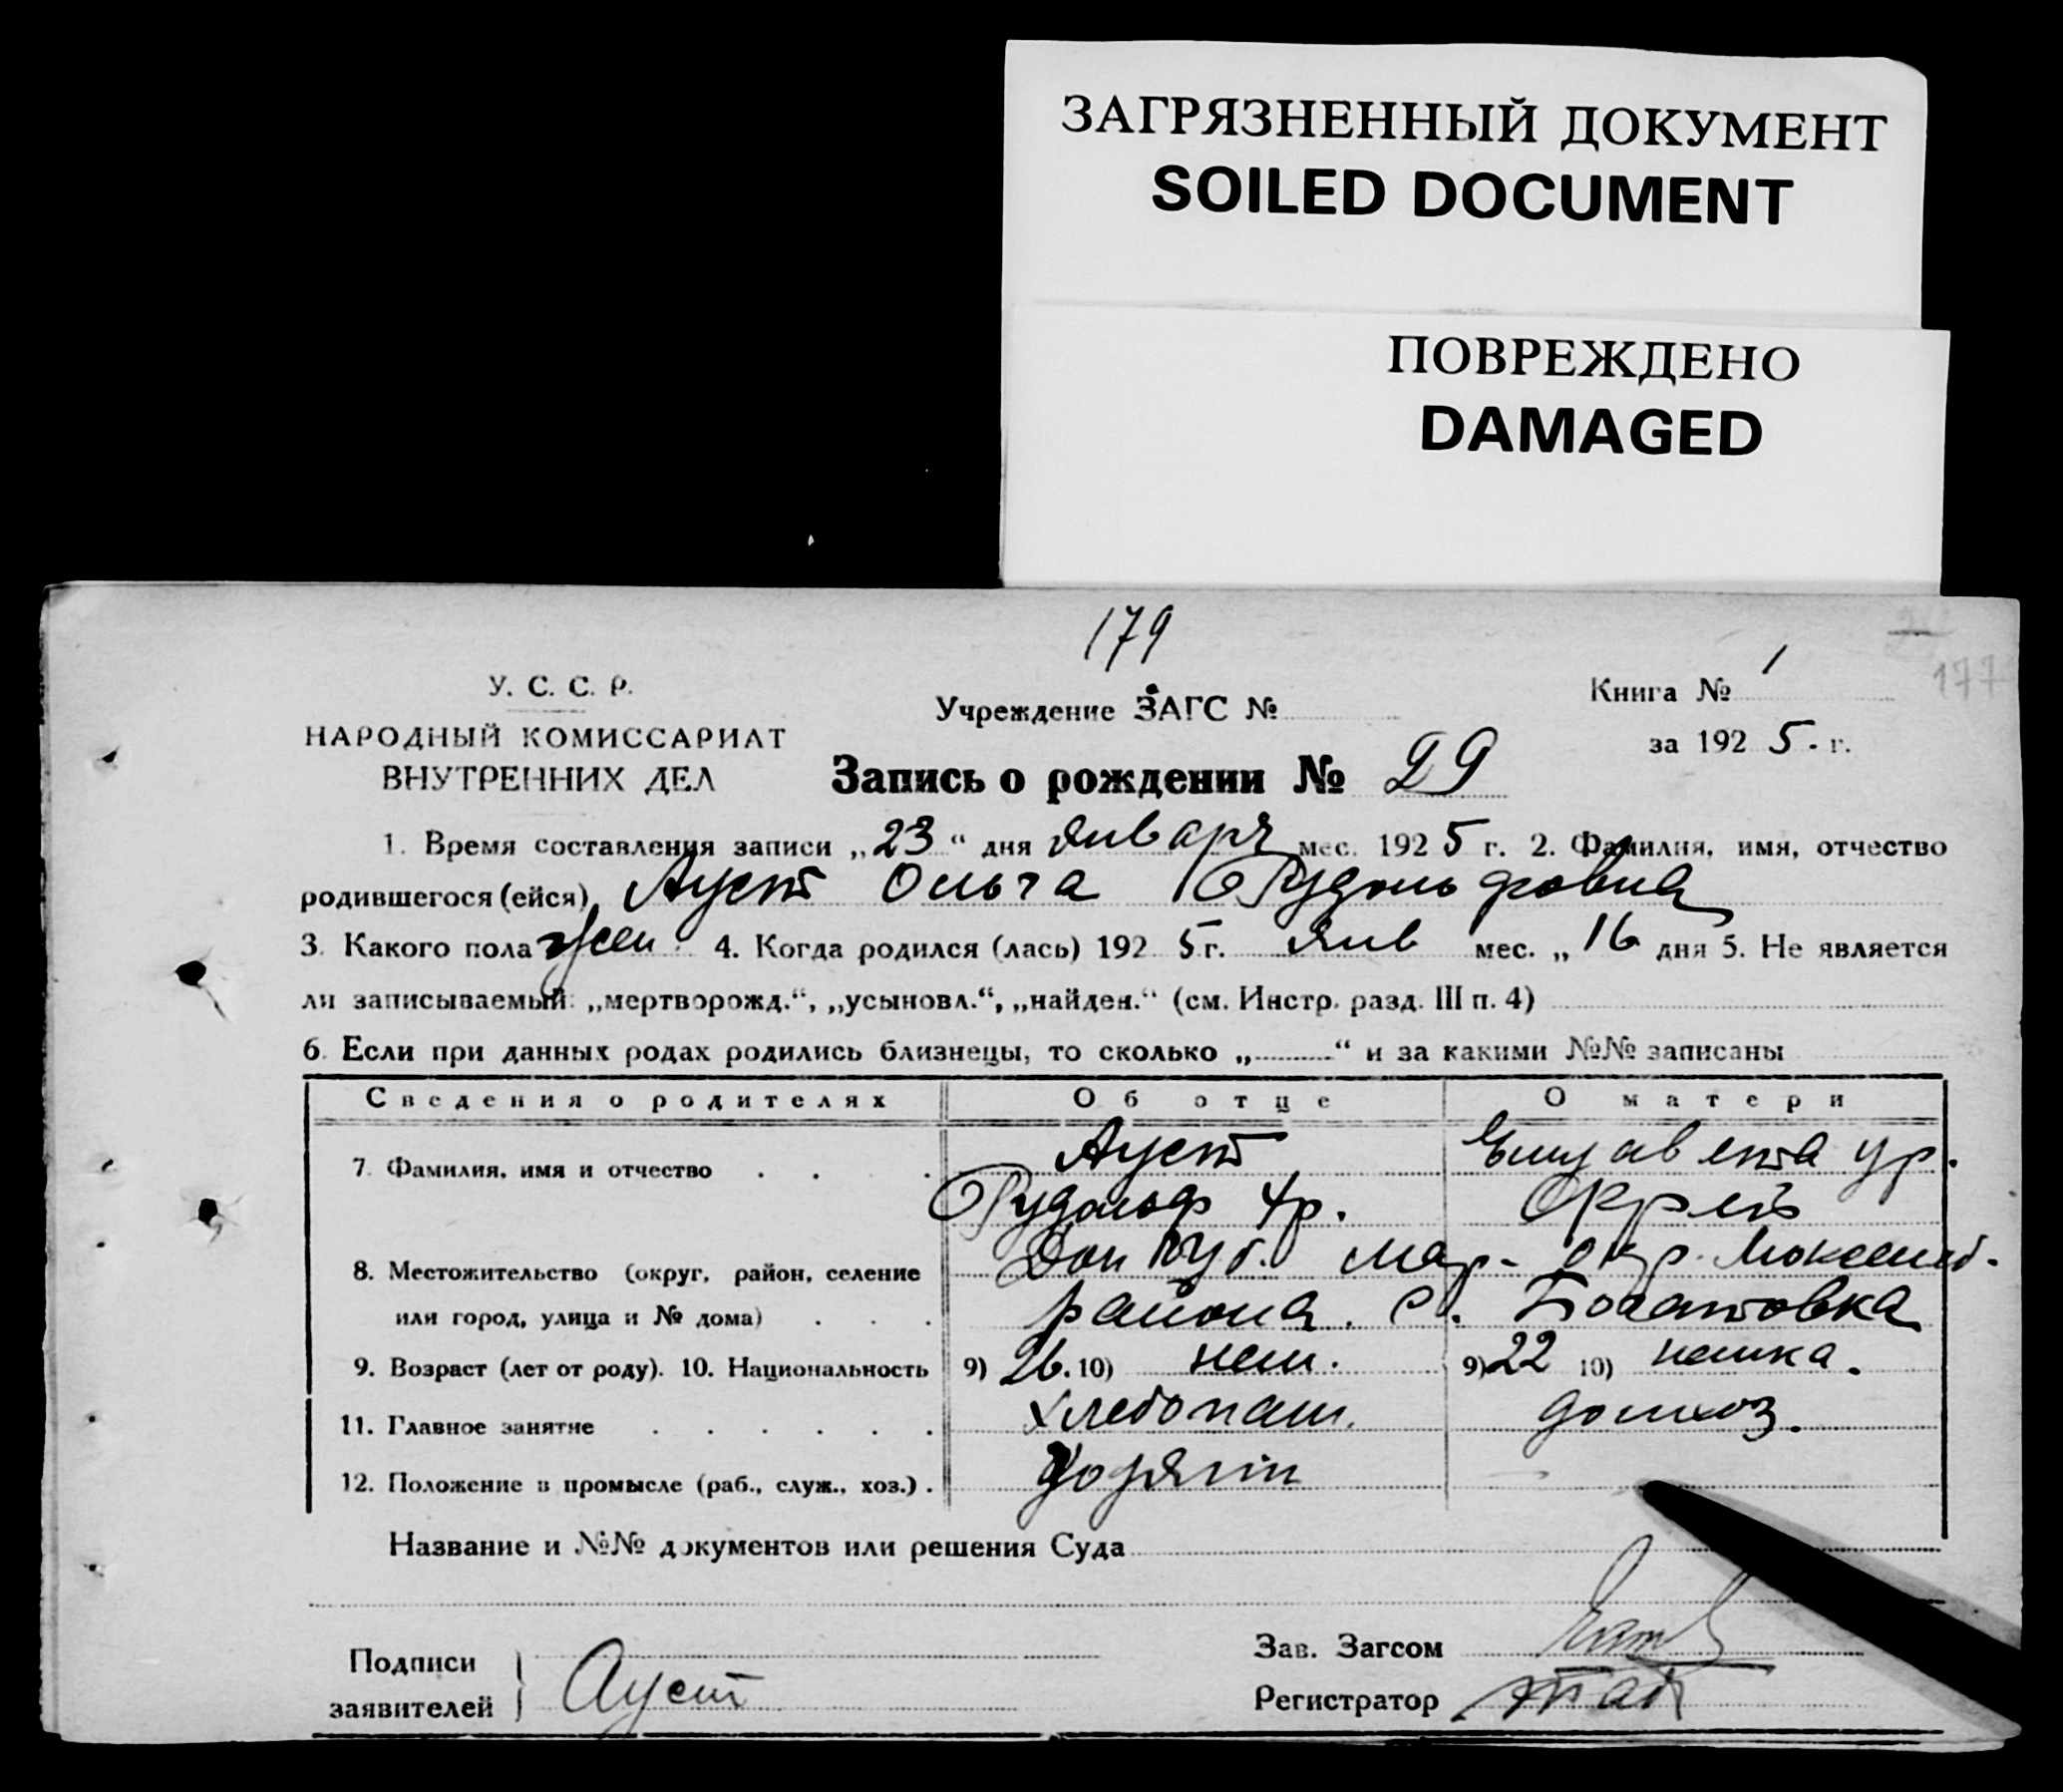 ЗАГРЯЗНЕННЫЙ ДОКУМЕНТ
SOILED DOCUMENT
ПОВРЕЖДЕНО
DAMAGED
179
177
У. С. С. Р.
НАРОДНЫЙ КОМИССАРИАТ
ВНУТРЕННИХ ДЕЛ
Учреждение ЗАГС №
Книга № 1
за 1925. г.
Запись о рождении № 29
1. Время составления записи „23“ дня января мес. 1925 г. 2. Фамилия, имя, отчество
родившегося (ейся) Ауст Ольга Рудольфовна
3. Какого пола жен. 4. Когда родился (лась) 1925 г. янв мес. „16 дня 5. Не является
ли записываемый: „мертворожд.“, „усыновл.“, „найден.“ (см. Инстр. разд. III п. 4)
6. Если при данных родах родились близнецы, то сколько „..........“ и за какими №№ записаны
Сведения о родителях Об отце О матери
7. Фамилия, имя и отчество Ауст Елизавета ур.
Рудольф
8. Местожительство (округ, район, селение Дон Губ. Мар. Окр.
или город, улица и № дома) района. с. Богатовка
9. Возраст (лет от роду). 10. Национальность 9) 26. 10) нем. 9) 22 10) немка.
11. Главное занятие хлебопаш. домхоз.
12. Положение в промысле (раб., служ., хоз.) хозяин
Название и №№ документов или решения Суда
Подписи
заявителей Ауст
Зав. Загсом
Регистратор